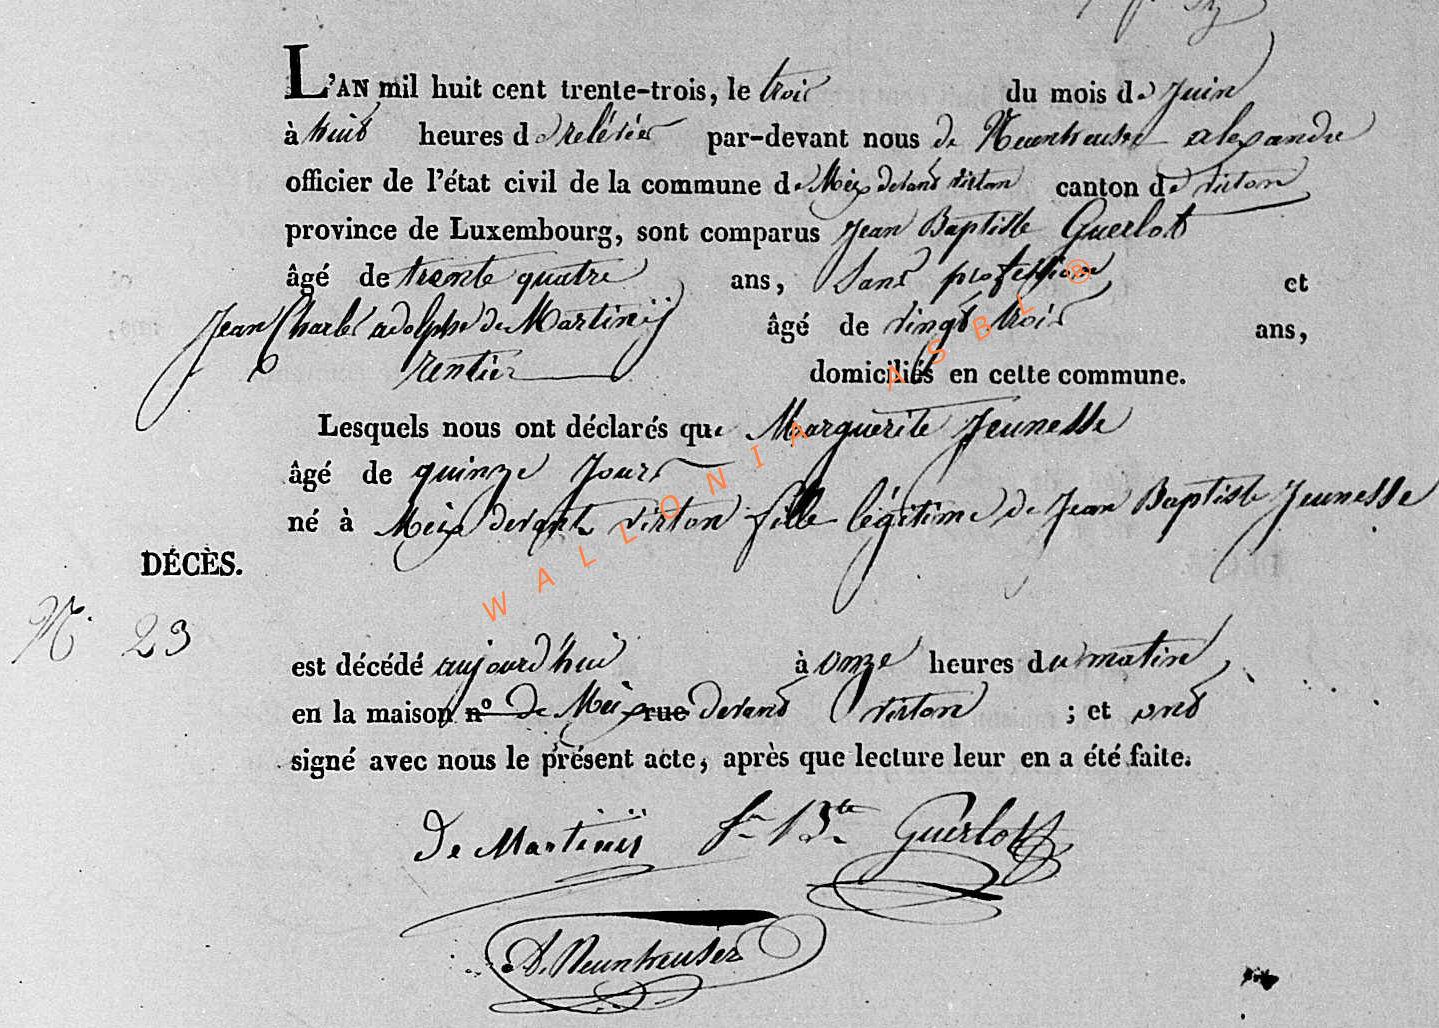 L'AN mil huit cent trente-trois, le trois du mois de Juin
à huit heures de relévée par-devant nous de Neunheuser alexandre
officier de l'état civil de la commune de Meix devant virton canton de virton
province de Luxembourg, sont comparus Jean Baptiste Guerlot
âgé de trente quatre ans, Sans profession et
Jean Charles adolphe de Martinÿ âgé de vingt trois ans,
rentier domiciliés en cette commune.
Lesquels nous ont déclarés que Marguerite Jeunesse
âgé de quinze Jours
né à Meix devant virton fille légitime de Jean Baptiste Jeunesse
DÉCÈS.
N. 23
est décédé aujourd'hui à onze heures du matin
en la maison n° de Meix rue devant virton ; et ont
signé avec nous le présent acte, après que lecture leur en a été faite.
De Martinÿ Jn Bte Guerlot
A. Neunheuser
WALLONIA ASBL ®